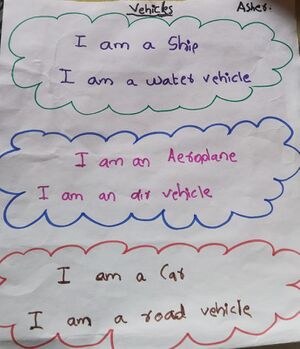 Vehicles
Asher.
I am a Ship
I am a water vehicle
I am an Aeroplane
I am an air vehicle
I am a Car
I am a road vehicle